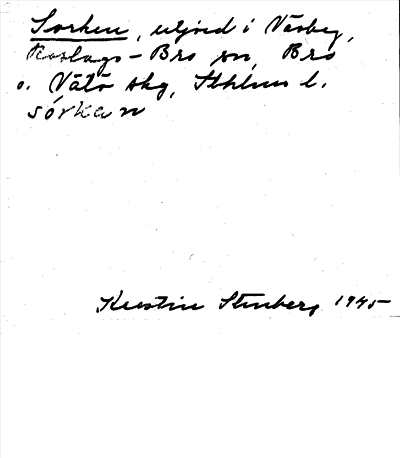 Sorken, utjord i Väsby,
Roslags-Bro sn, Bro
o. Vätö skg, Sthlms l.
sórkan
Kerstin Stenberg 1945